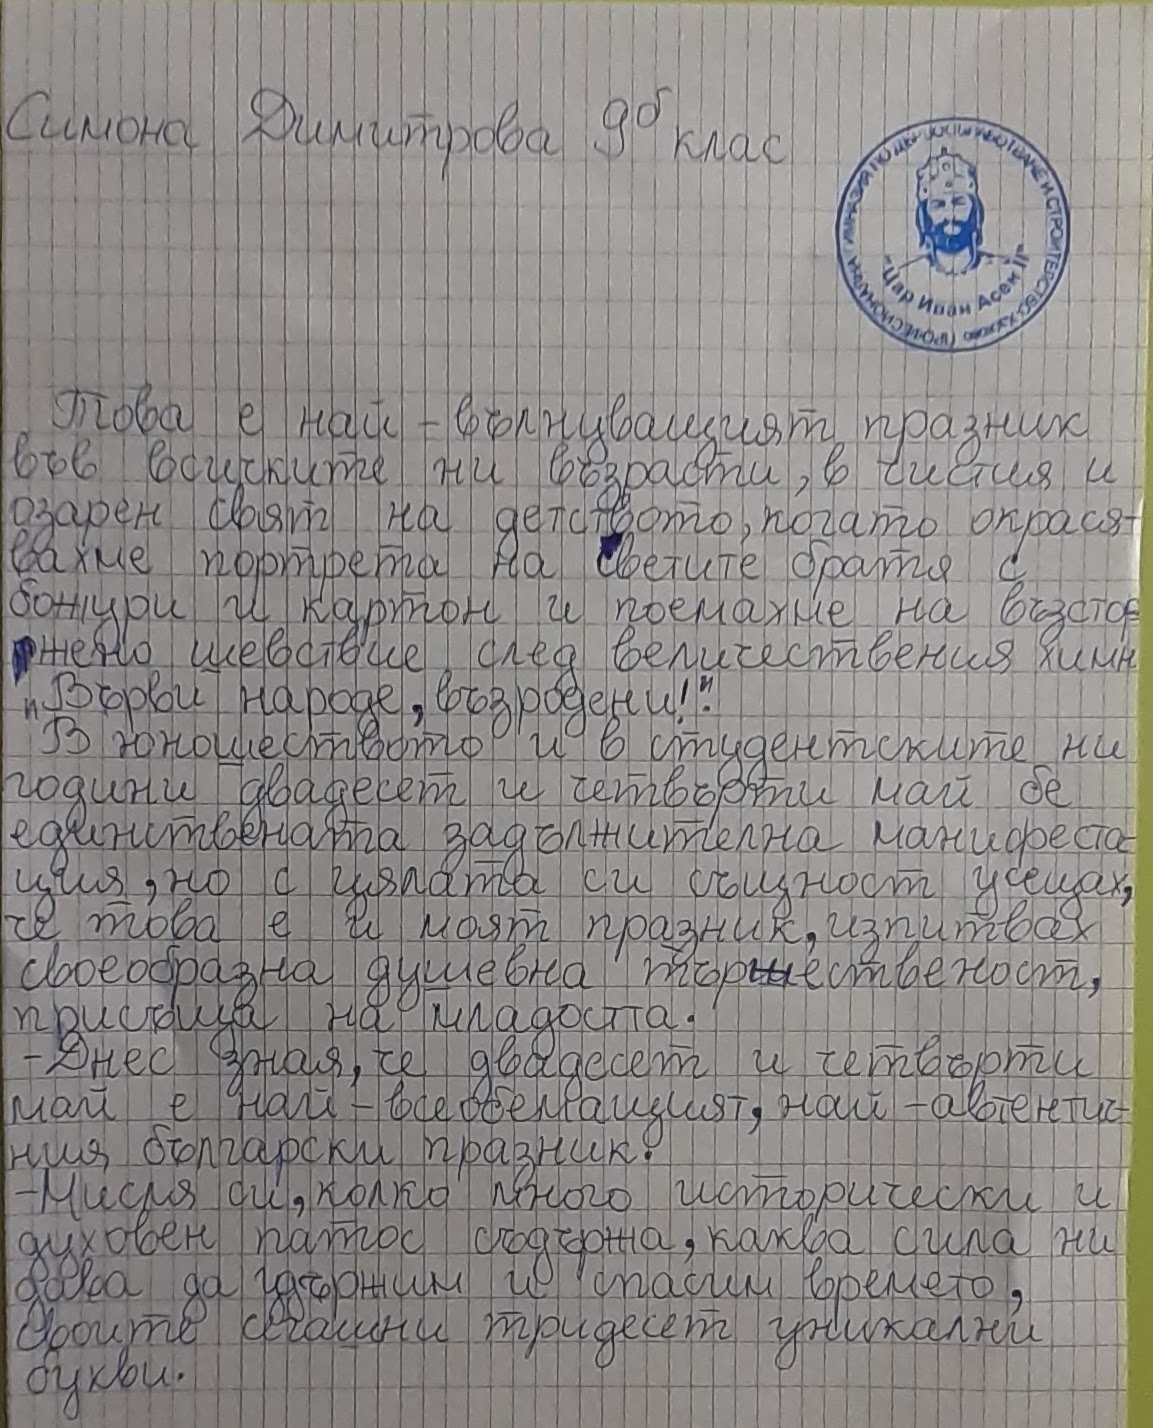 Симона Димитрова 9б клас
ПРОФЕСИОНАЛНА ГИМНАЗИЯ ПО И СТРОИТЕЛСТВО
"Цар Иван Асен II"
Това е най-вълнуващият празник
във всичките ни възрасти, в чистия и
озарен свят на детството, когато окрася-
вахме портрета на светите братя с
божури и картон и поемахме на възстор-
жено шевствие след величествения химн
"Върви народе, възродени!".
В юношеството и в студентските ни
години двадесет и четвърти май бе
единствената задължителна манифеста-
ция, но с цялата си същност усещах,
че това е и моят празник, изпитвах
своеобразна душевна тържественост,
присъща на младостта.
-Днес зная, че двадесет и четвърти
май е най-всеобемащият, най-автентич-
ния български празник.
-Мисля си, колко много исторически и
духовен патос съдържа, каква сила ни
дава да удържим и спасим времето,
своите сегашни тридесет уникални
букви.